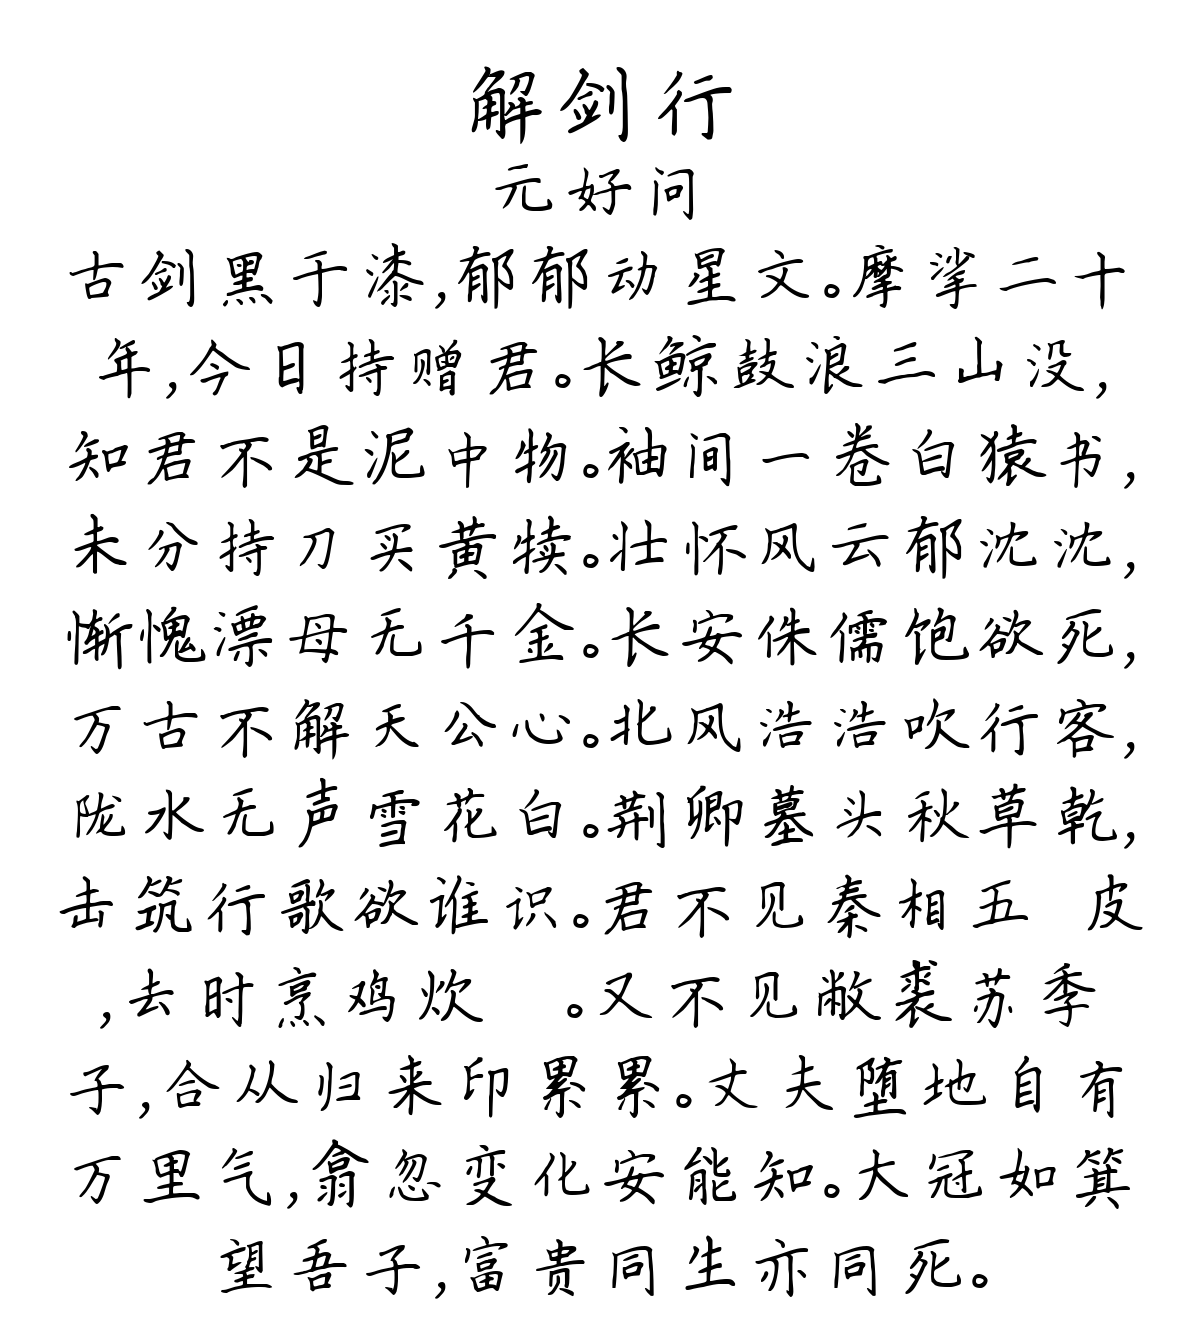 解剑行
元好问
古剑黑于漆,郁郁动星文。摩挲二十
年,今日持赠君。长鲸鼓浪三山没,
知君不是泥中物。袖间一卷白猿书,
未分持刀买黄犊。壮怀风云郁沈沈,
惭愧漂母无千金。长安侏儒饱欲死,
万古不解天公心。北风浩浩吹行客,
陇水无声雪花白。荆卿墓头秋草乾,
击筑行歌欲谁识。君不见秦相五 皮
,去时烹鸡炊 。又不见敝裘苏季
子,合从归来印累累。丈夫堕地自有
万里气,翕忽变化安能知。大冠如箕
望吾子,富贵同生亦同死。